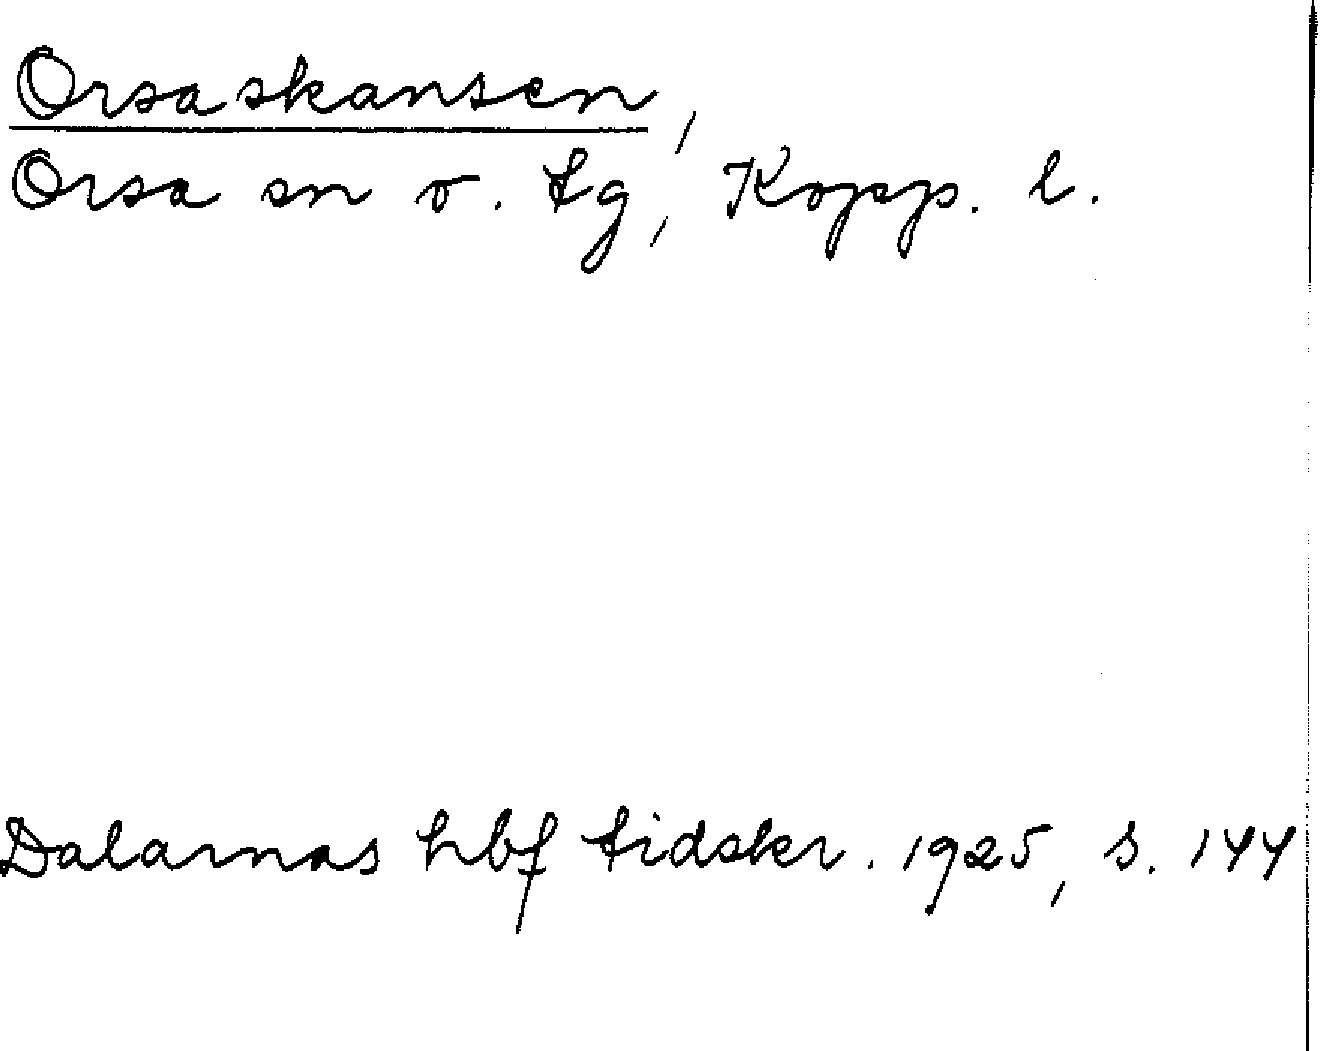 Orsaskansen,
Orsa sn o. tg, Kopp. l.
Dalarnas hbf tidskr. 1925, s. 144